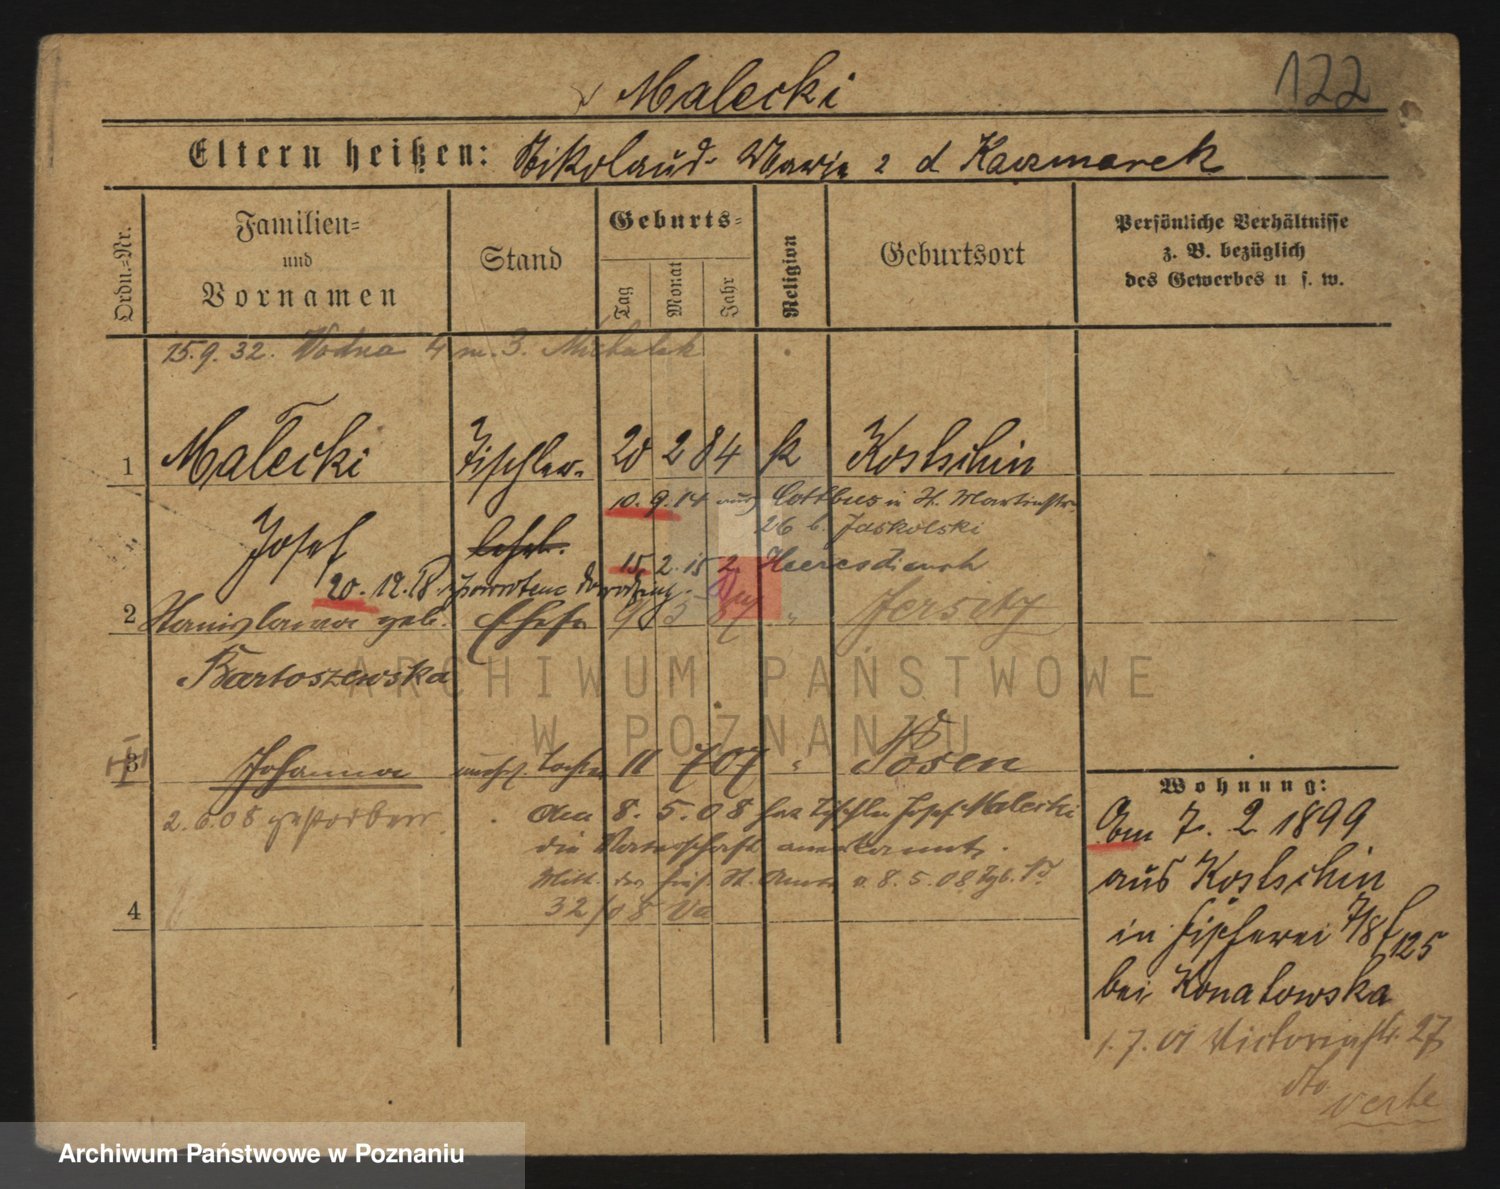 122
Malecki
Eltern heißen: Nikolaus Marie d Kaczmarek
Ordn.-Nr.
Familien-
und
Vornamen
Stand
Geburts-
Tag
Monat
Jahr
Religion
Geburtsort
Persönliche Verhältnisse
z. B. bezüglich
des Gewerbes u s. w.
15.9.32. Wodna 4 m. 3. Michalak
1 Malecki Tischler- 20 2 84 k Kostschin
10.9.14 aus Cottbus in St. Martinstr.
26 b. Jaskolski
Josef lehrl.
15.2.15 z. Heeresdienst
20.12.18.
2 Stanislawa geb. Ehefr 9 5 87 " Jersitz
Bartoszewska
3 Johanna unehel Tochter 11 7 07 " Posen
2.6.08 gestorben
den 8.5.08 hat Tischler Josef Malecki
die Vaterschaft anerkannt.
Mitt. des St. Amts v. 8.5.08 Tgb. Nr
32/08 Va
4
Wohnung:
Am 7. 2 1899
aus Kostschin
in Fischerei 7/8 125
bei Konatowska
1.7.01 Victoriastr. 27
dto
verte
ARCHIWUM PAŃSTWOWE
W POZNANIU
Archiwum Państwowe w Poznaniu